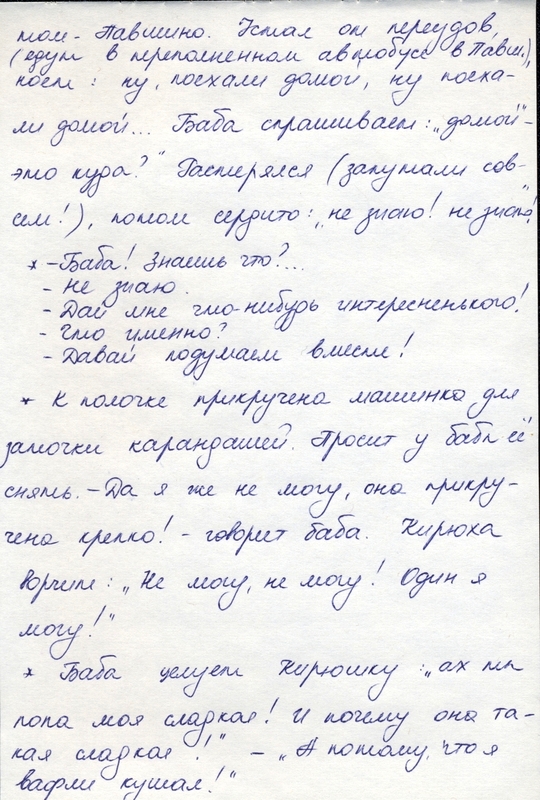 том - Павшино. Устал он переездов,
(едут в переполненном автобусе в Павш.),
поет: ну, поехали домой, ну поеха-
ли домой... Баба спрашивает: „домой -
это куда?" Растерялся (запутали сов-
сем!), потом сердито: „не знаю! не знаю!"
* - Баба! Знаешь что?...
- Не знаю.
- Дай мне что-нибудь интересненького!
- Что именно?
- Давай подумаем вместе!
* К полочке прикручена машинка для
заточки карандашей. Просит у бабы её
снять. - Да я же не могу, она прикру-
чена крепко! - говорит баба. Кирюха
ворчит: „Не могу, не могу! Один я
могу!"
* Баба целует Кирюшку: „ах ты
попа моя сладкая! И почему она та-
кая сладкая!" - „А потому, что я
вафли кушал!"